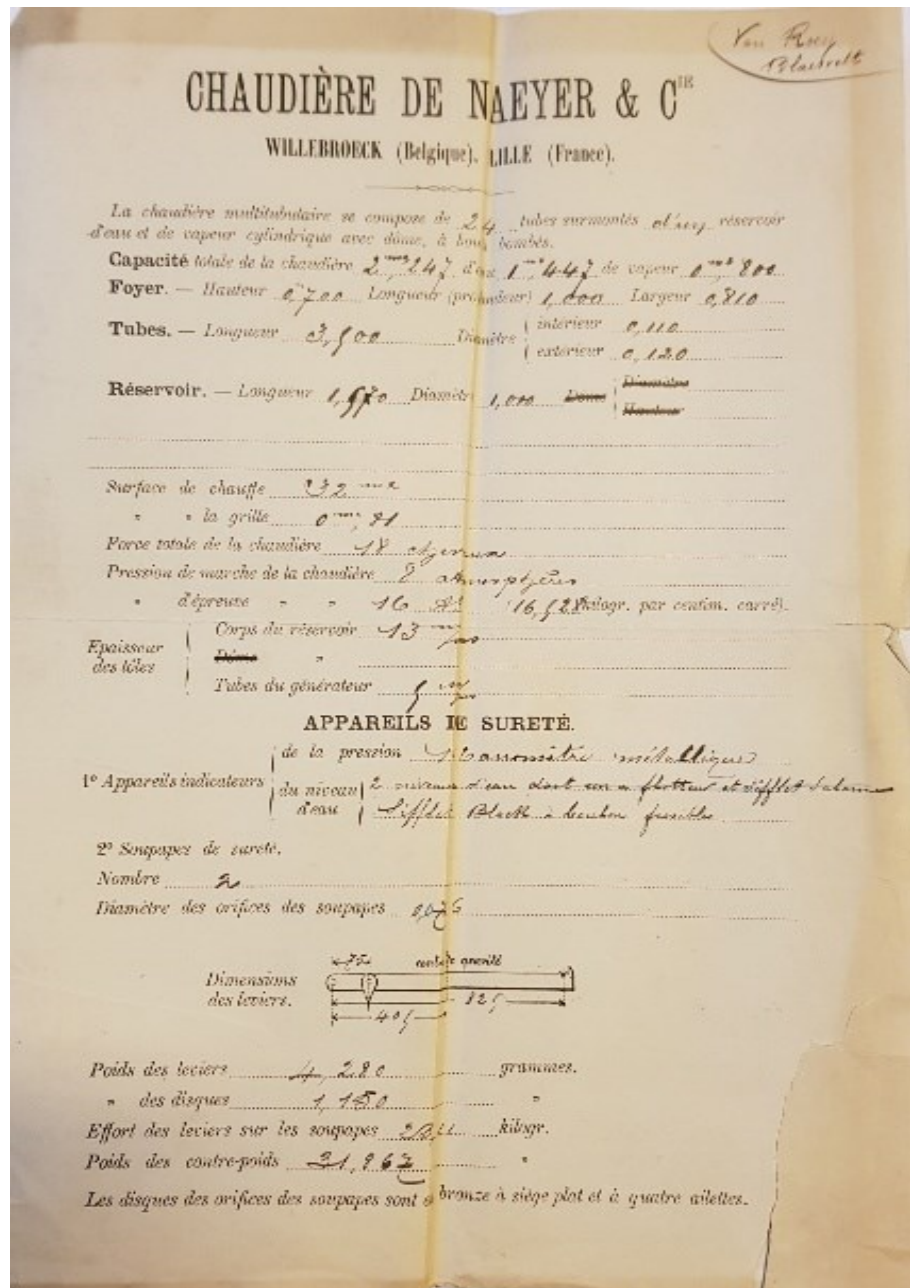 Van Roey
Blaesvelt
CHAUDIÈRE DE NAEYER & CIE
WILLEBROECK (Belgique), LILLE (France).
La chaudière multitubulaire se compose de 24 tubes surmontés d'un réservoir
d'eau et de vapeur cylindrique avec dôme, à bouts bombés.
Capacité totale de la chaudière 2 m3,247 d'eau 1 m3,447 de vapeur 0 m3,800
Foyer. — Hauteur 0,700 Longueur (profondeur) 1,000 Largeur 0,810
Tubes. — Longueur 3,500 Diamètre intérieur 0,110
extérieur 0,120
Réservoir. — Longueur 1,970 Diamètre 1,000 Dôme Diamètre
Hauteur
Surface de chauffe 32 m2
" " la grille 0 m2,81
Force totale de la chaudière 18 chevaux
Pression de marche de la chaudière 8 atmosphères
" d'épreuve " " 16 (16,528 kilogr. par centim. carré).
Epaisseur
des tôles
Corps du réservoir 13 m/m
Dôme "
Tubes du générateur 5 m/m
APPAREILS DE SURETÉ.
1º Appareils indicateurs
de la pression 1 Manomètre métallique
du niveau d'eau 2 niveaux d'eau dont un a flotteur et sifflet d'alarme
Sifflet Black à bouchon fusible
2º Soupapes de sureté.
Nombre 2
Diamètre des orifices des soupapes 0,076
Dimensions
des leviers.
75 centre gravité
825
405
Poids des leviers 4,280 grammes.
" des disques 1,150 "
Effort des leviers sur les soupapes kilogr.
Poids des contre-poids 31,967 "
Les disques des orifices des soupapes sont e bronze à siége plat et à quatre ailettes.